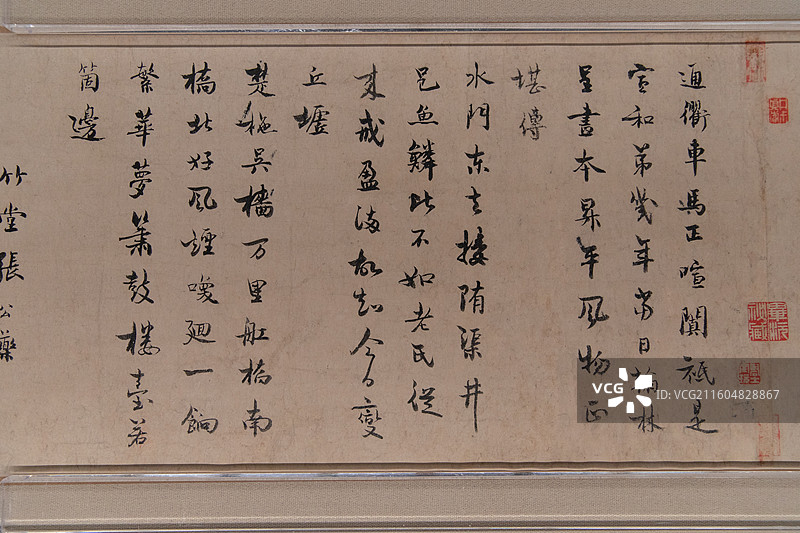 通衢車馬正喧闐祇是
宣和第幾年當日翰林
呈畫本昇平風物正
堪傳
水門東去接隋渠井
邑魚鱗比不如老氏從
來戒盈滿故知今日變
丘墟
楚柂吳檣万里舡橋南
橋北好風煙喚廻一餉
繁華夢簫鼓樓臺若
箇邊
竹堂張公藥
VCG
ID:VCG211604828867